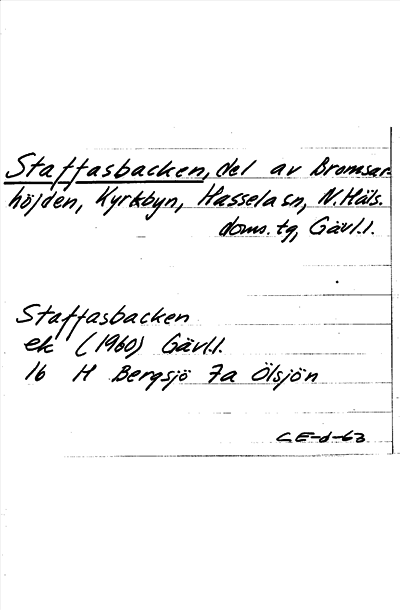 Staffasbacken, del av Bromsar-
höjden, Kyrkbyn, Hassela sn, N. Häls.
doms. tg, Gävl.l.
Staffasbacken
ek (1960) Gävl.l.
16 H Bergsjö 7a Ölsjön
CE-d-63